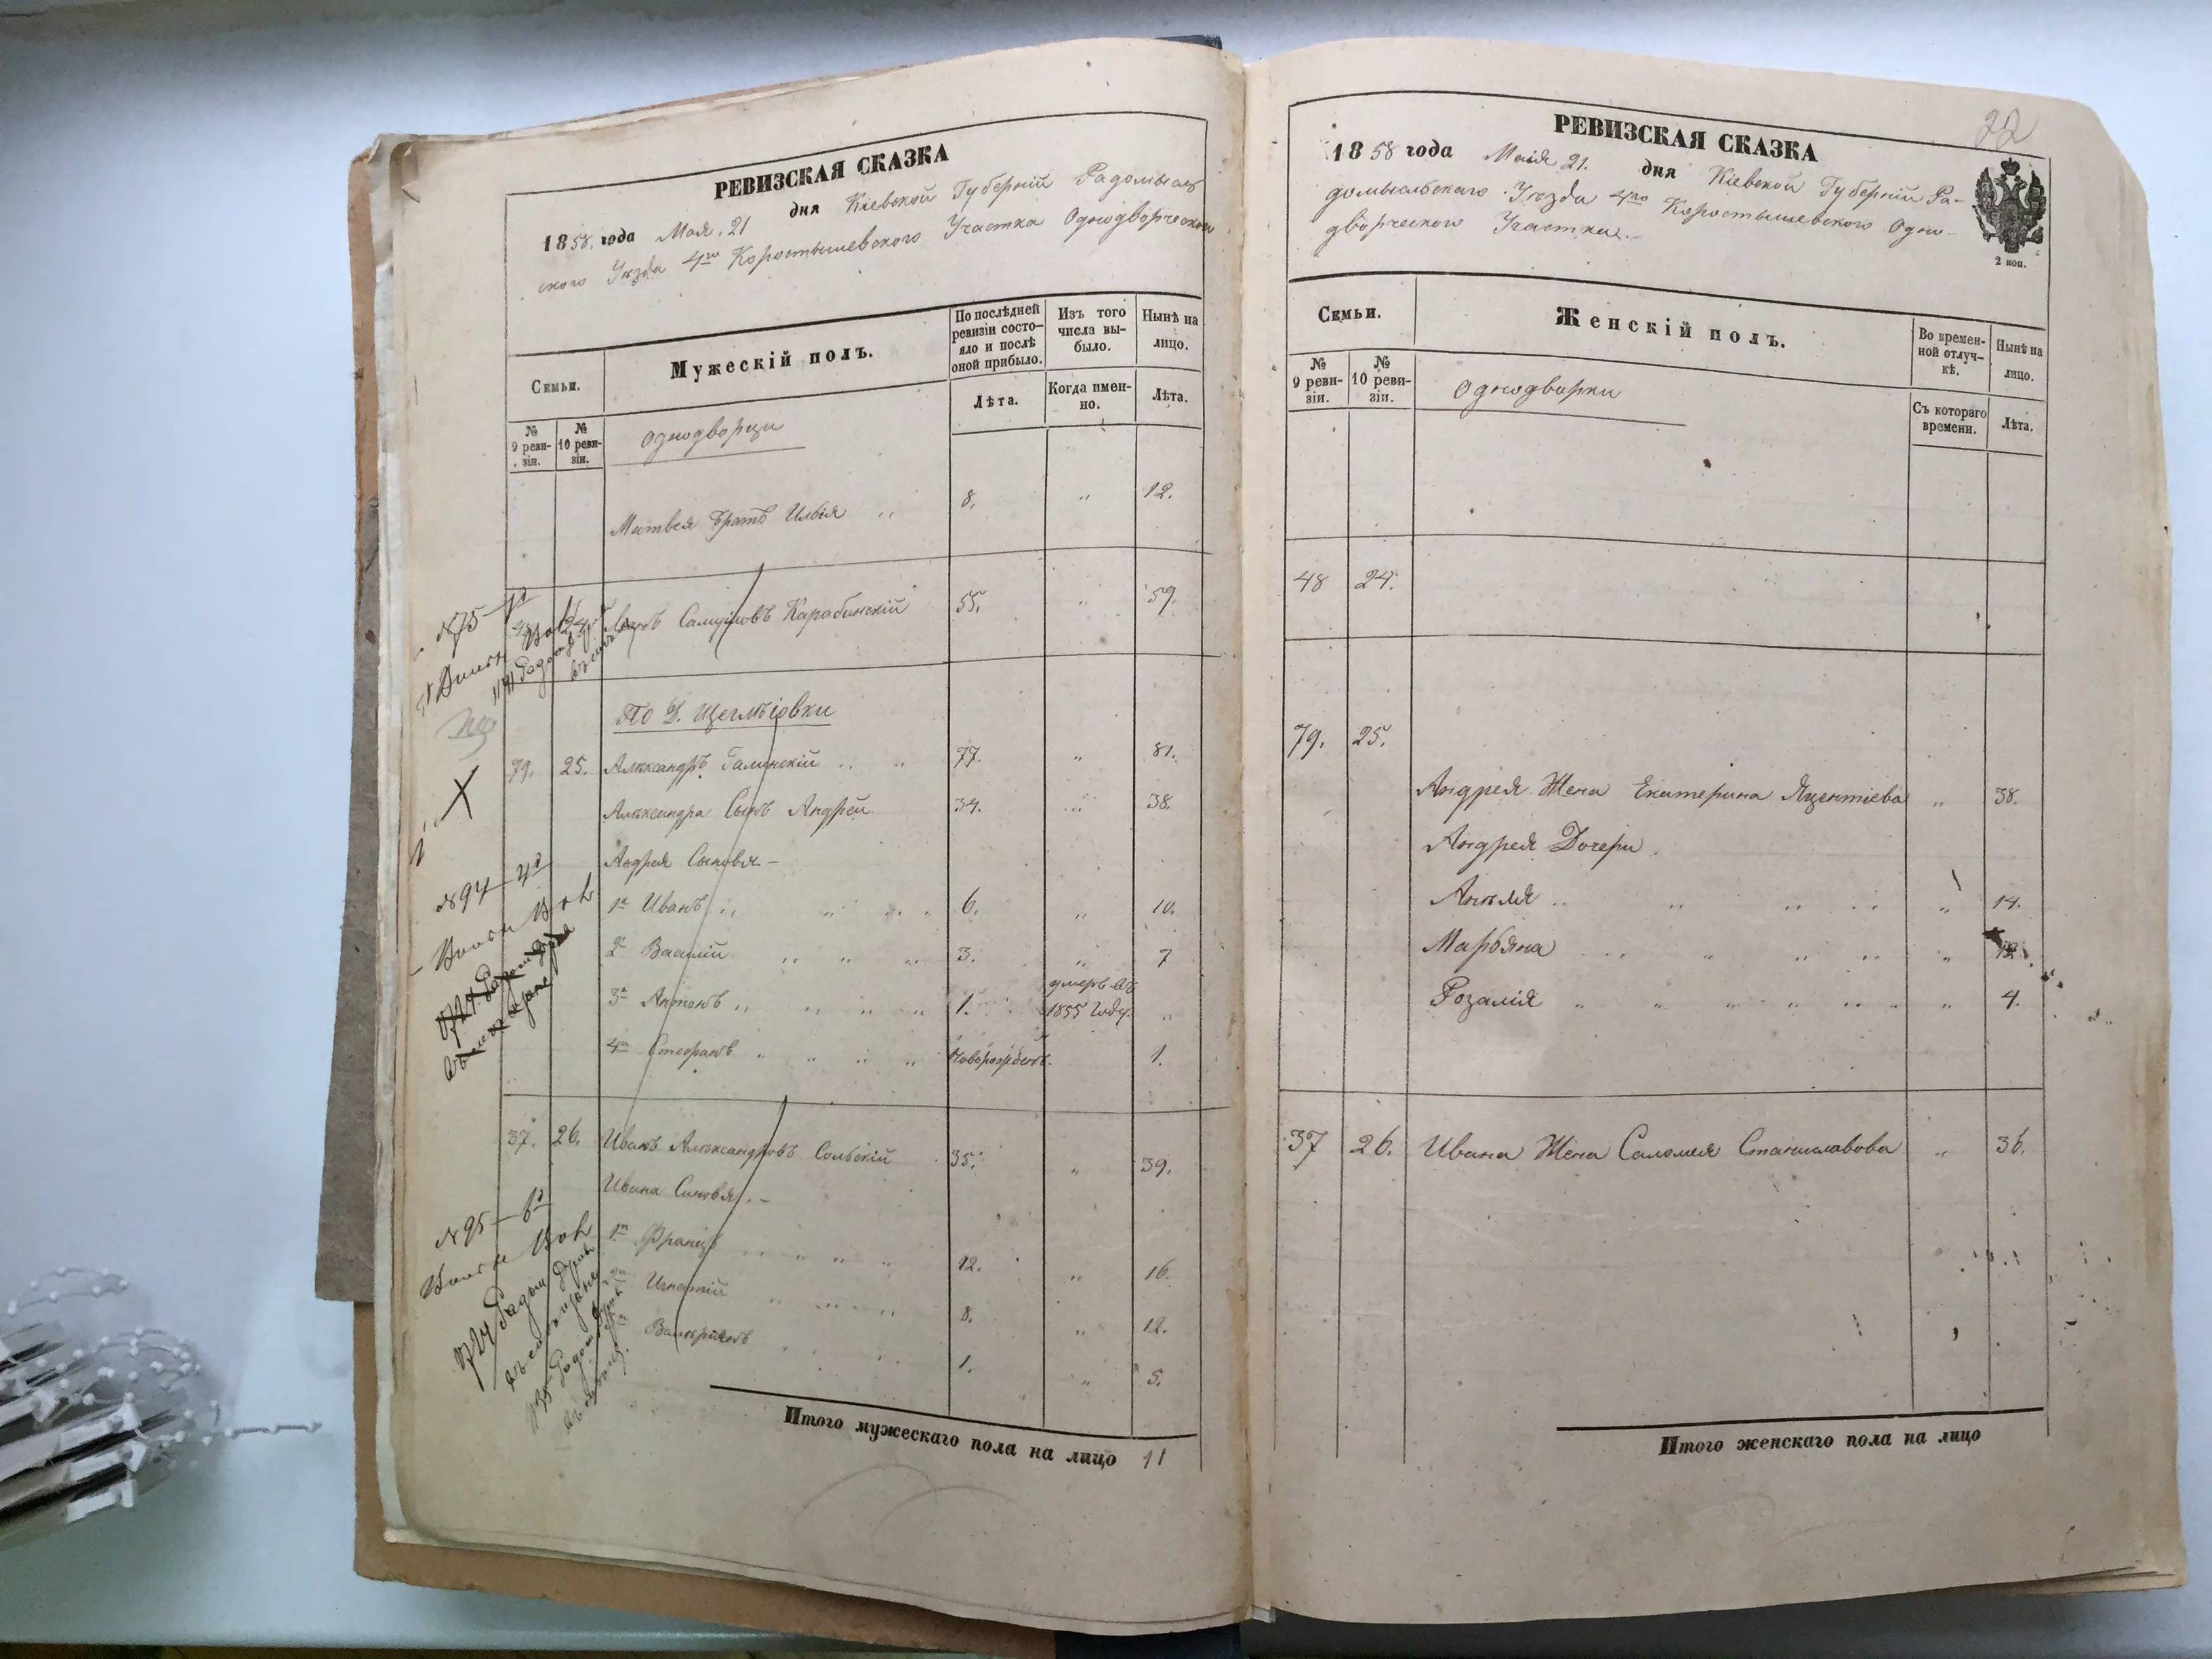 РЕВИЗСКАЯ СКАЗКА
1858. года Мая. 21 дня Кіевской Губерніи Радомысль
ского Уѣзда 4го Коростышевского Участка Однодворческого
Семьи.
№ 9 реви-зіи.
№ 10 реви-зіи.
Мужескій полъ.
По послѣдней ревизіи состо-яло и послѣ оной прибыло.
Лѣта.
Изъ того числа вы-было.
Когда имен-но.
Нынѣ на лицо.
Лѣта.
Однодворци
Матвея братъ Илья „ 8. „ 12.
24 Карабинскій 55. „ 59.
По Д. Щеглѣіовки
79. 25. Александръ Галинскій „ „ 77. „ 81.
Александра Сынъ Андрей 34. „ 38.
Андрея Сыновья –
1й Иванъ „ „ „ 6. „ 10.
2й Василій „ „ „ 3. „ 7
3й Антонъ „ „ „ „ 1. умеръ въ 1855 году. „
4й Стефанъ „ „ „ „ Новорожден. 1.
37. 26. Иванъ Александровъ Сольскій 35. „ 39.
Ивана Сыновья. –
1й Францъ „ „ „ 12. „ 16.
Игнатій „ „ „ 8. „ 12.
Валеріянъ „ „ 1. „ 5.
Итого мужескаго пола на лицо 11
№75
№94
№95
22
РЕВИЗСКАЯ СКАЗКА
1858 года Маія 21. дня Кіевской Губерніи Ра-
домысльскаго Уѣзда 4го Коростышевского Одно-
дворческого Участка. –
2 коп.
Семьи.
№ 9 реви-зіи.
№ 10 реви-зіи.
Женскій полъ.
Во времен-ной отлуч-кѣ.
Съ котораго времени.
Нынѣ на лицо.
Лѣта.
Однодворки
48 24.
79. 25.
Андрея Жена Екатерина Яцентіева „ 38.
Андрея Дочери
Анеля „ „ „ „ „ 14.
Марьяна „ „ „ „ „ 12.
Розалія „ „ „ „ „ „ 4.
37 26. Ивана Жена Саломея Станиславова „ 36.
Итого женскаго пола на лицо